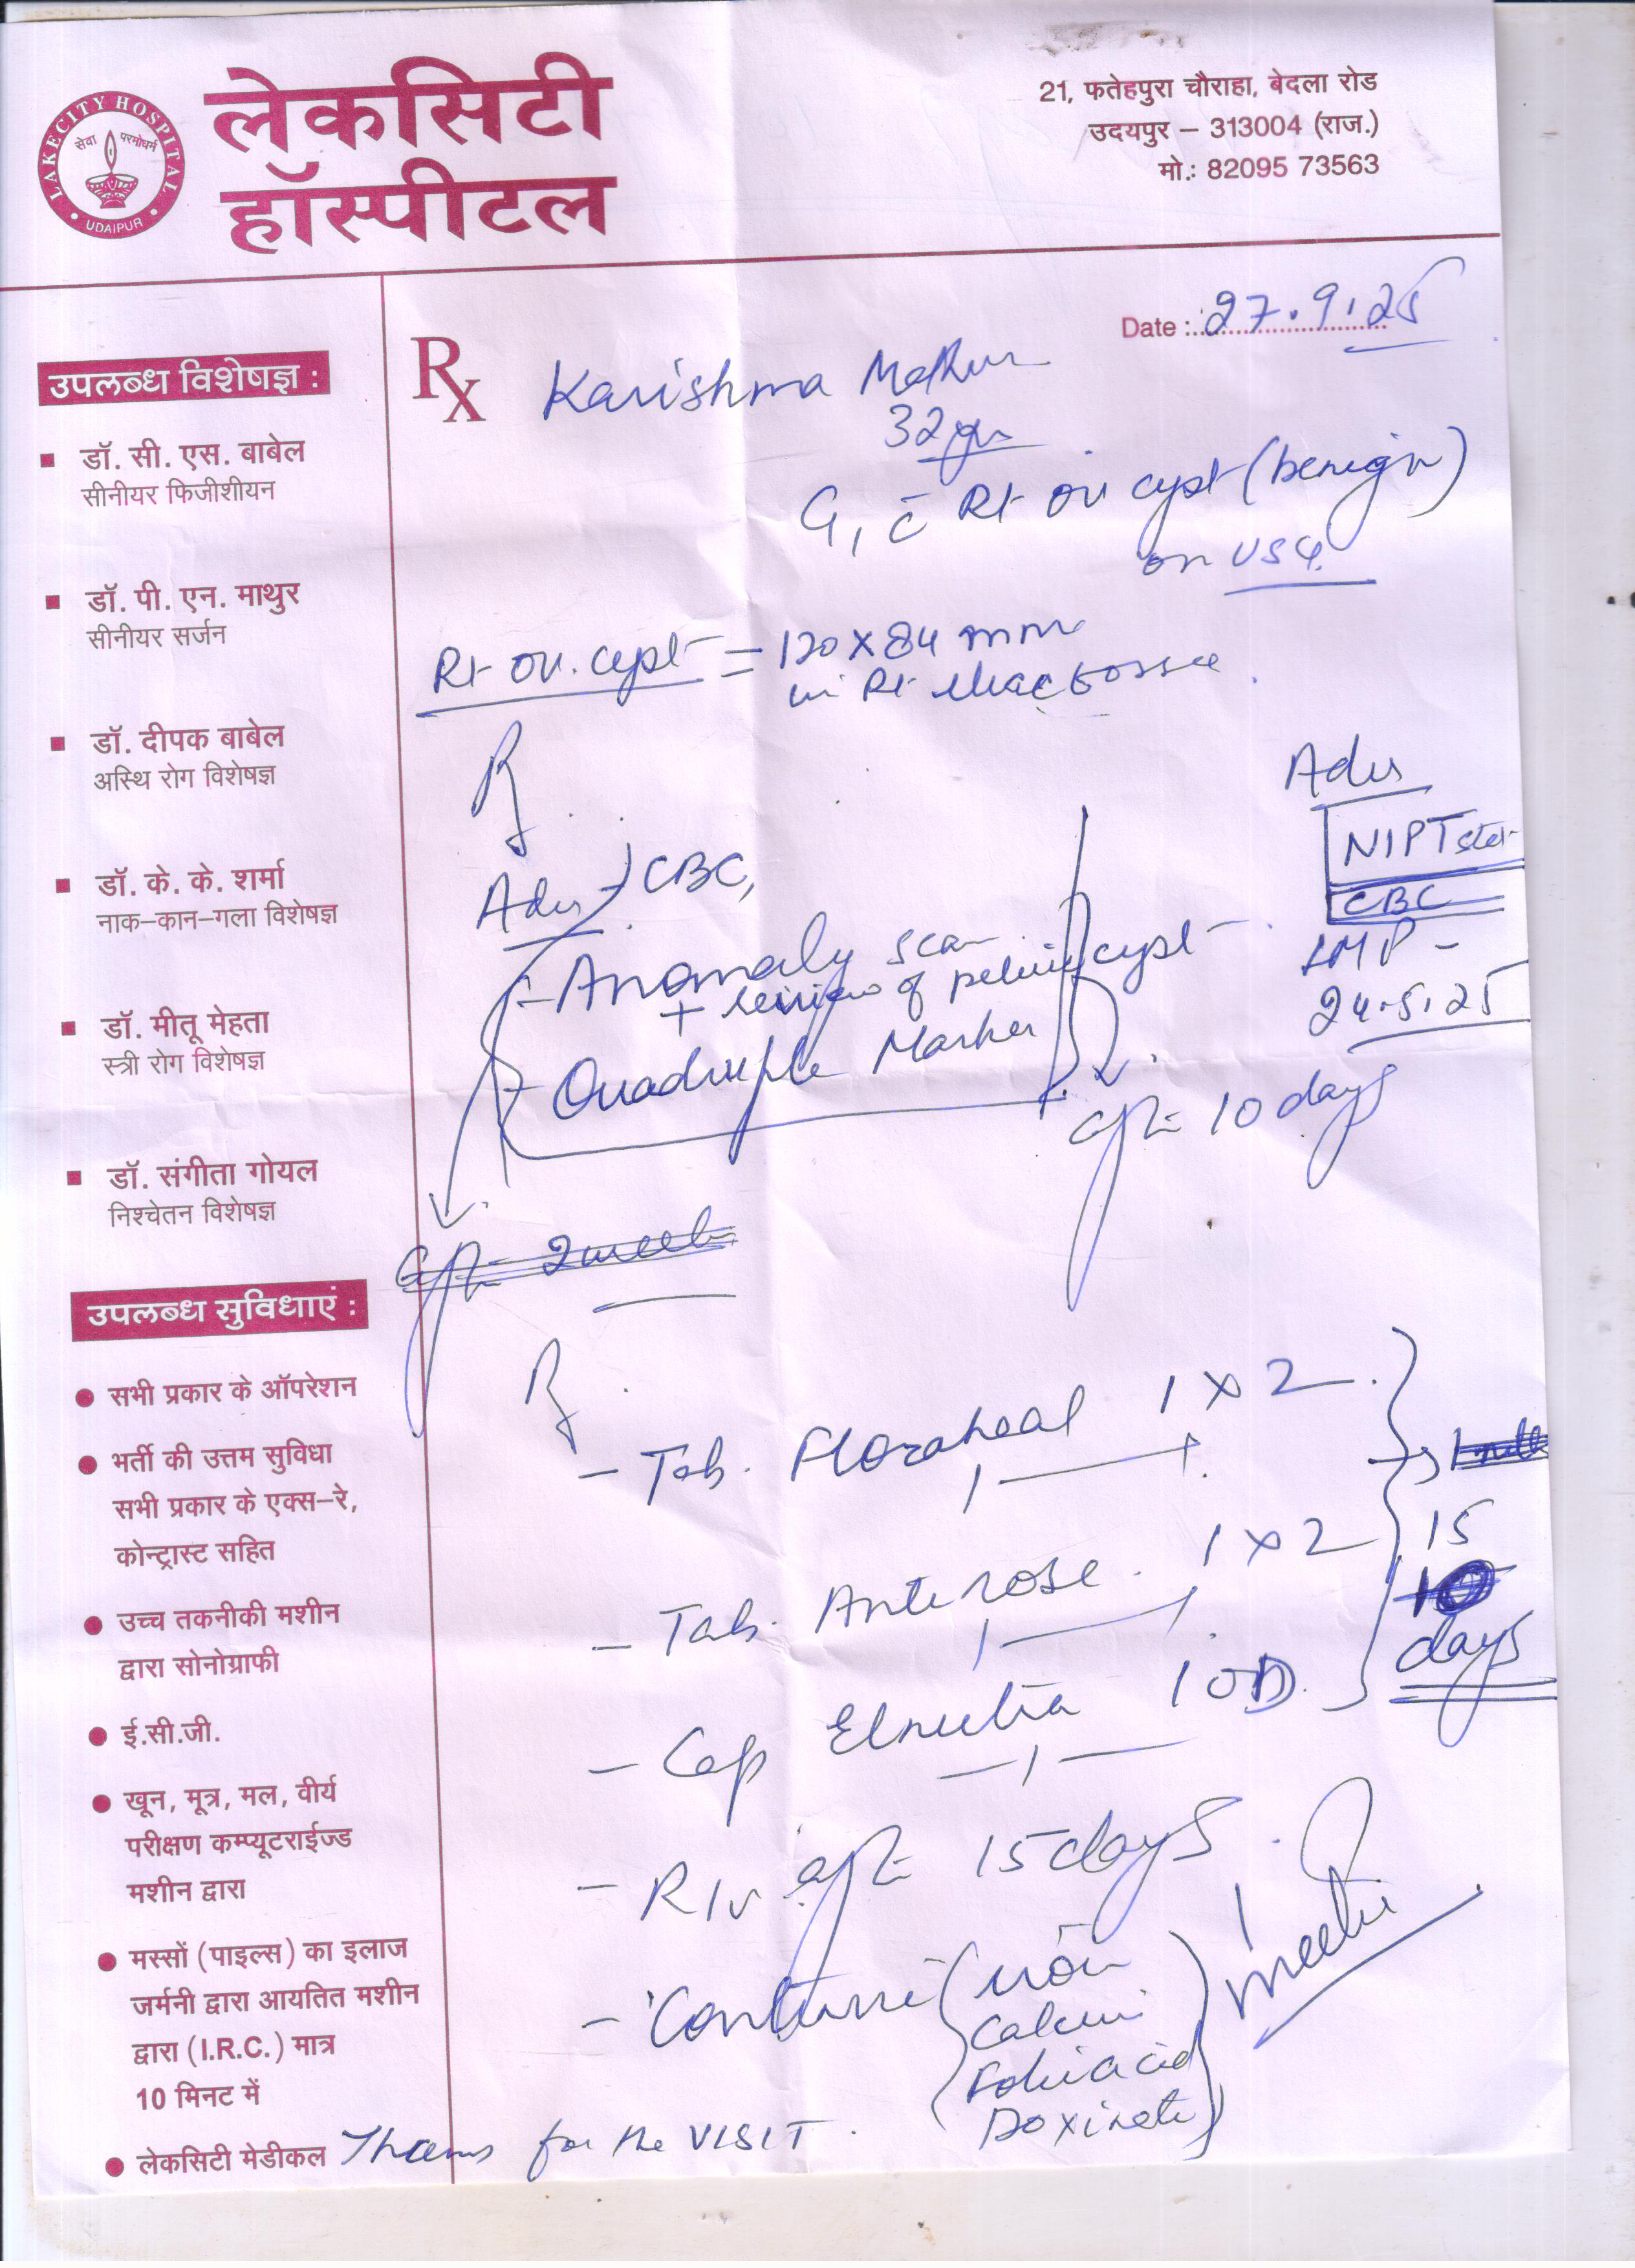 LAKECITY HOSPITAL
सेवा परमोधर्म
UDAIPUR
लेकसिटी
हॉस्पीटल
21, फतेहपुरा चौराहा, बेदला रोड
उदयपुर – 313004 (राज.)
मो.: 82095 73563
Date : 27.9.25
उपलब्ध विशेषज्ञ :
डॉ. सी. एस. बाबेल
सीनीयर फिजीशीयन
डॉ. पी. एन. माथुर
सीनीयर सर्जन
डॉ. दीपक बाबेल
अस्थि रोग विशेषज्ञ
डॉ. के. के. शर्मा
नाक–कान–गला विशेषज्ञ
डॉ. मीतू मेहता
स्त्री रोग विशेषज्ञ
डॉ. संगीता गोयल
निश्चेतन विशेषज्ञ
उपलब्ध सुविधाएं :
सभी प्रकार के ऑपरेशन
भर्ती की उत्तम सुविधा
सभी प्रकार के एक्स–रे,
कोन्ट्रास्ट सहित
उच्च तकनीकी मशीन
द्वारा सोनोग्राफी
ई.सी.जी.
खून, मूत्र, मल, वीर्य
परीक्षण कम्प्यूटराईज्ड
मशीन द्वारा
मस्सों (पाइल्स) का इलाज
जर्मनी द्वारा आयतित मशीन
द्वारा (I.R.C.) मात्र
10 मिनट में
लेकसिटी मेडीकल
Rx Karishma Mathur
32 yr
G1 c̄ Rt ov cyst (benign)
on USG
Rt ov. cyst = 120 X 84 mm
in Rt iliac fossa
Rx
Adv CBC,
- Anomaly scan
+ review of pelvic cyst
- Quadruple Marker
Adv
NIPT
CBC
LMP -
24.5.25
aft 10 days
aft 2 week
Rx
- Tab. Floraheal 1 x 2
- Tab. Anterose 1 x 2
- Cap Elnutra 1 OD
15
10
days
- R/v aft 15 days
- Continue (iron
Calcium
Folic acid
Doxinate)
Meetu
Thanks for the VISIT